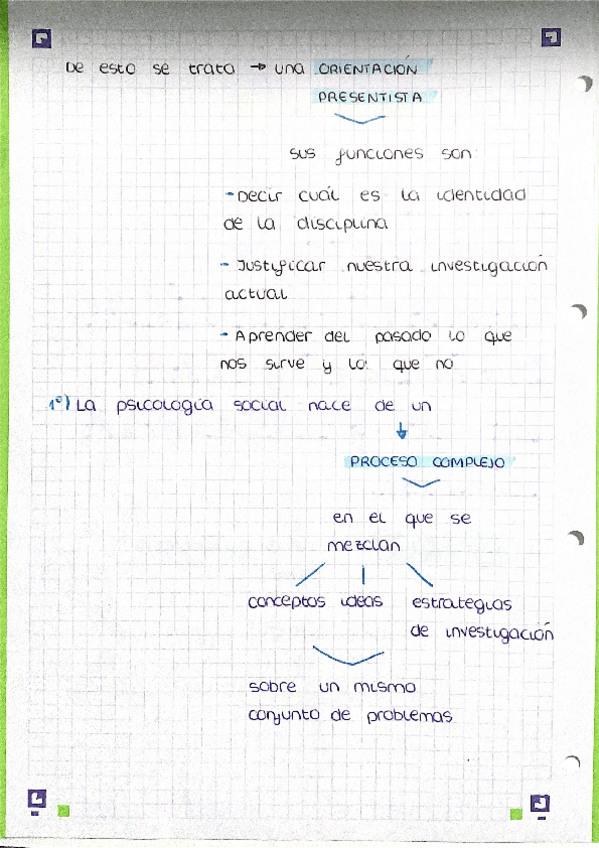 De esto se trata → una ORIENTACIÓN
PRESENTISTA
sus funciones son
- Decir cuál es la identidad
de la disciplina
- Justificar nuestra investigación
actual
- Aprender del pasado lo que
nos sirve y lo que no
1º) La psicología social nace de un
PROCESO COMPLEJO
en el que se
mezclan
conceptos ideas estrategias
de investigación
sobre un mismo
conjunto de problemas